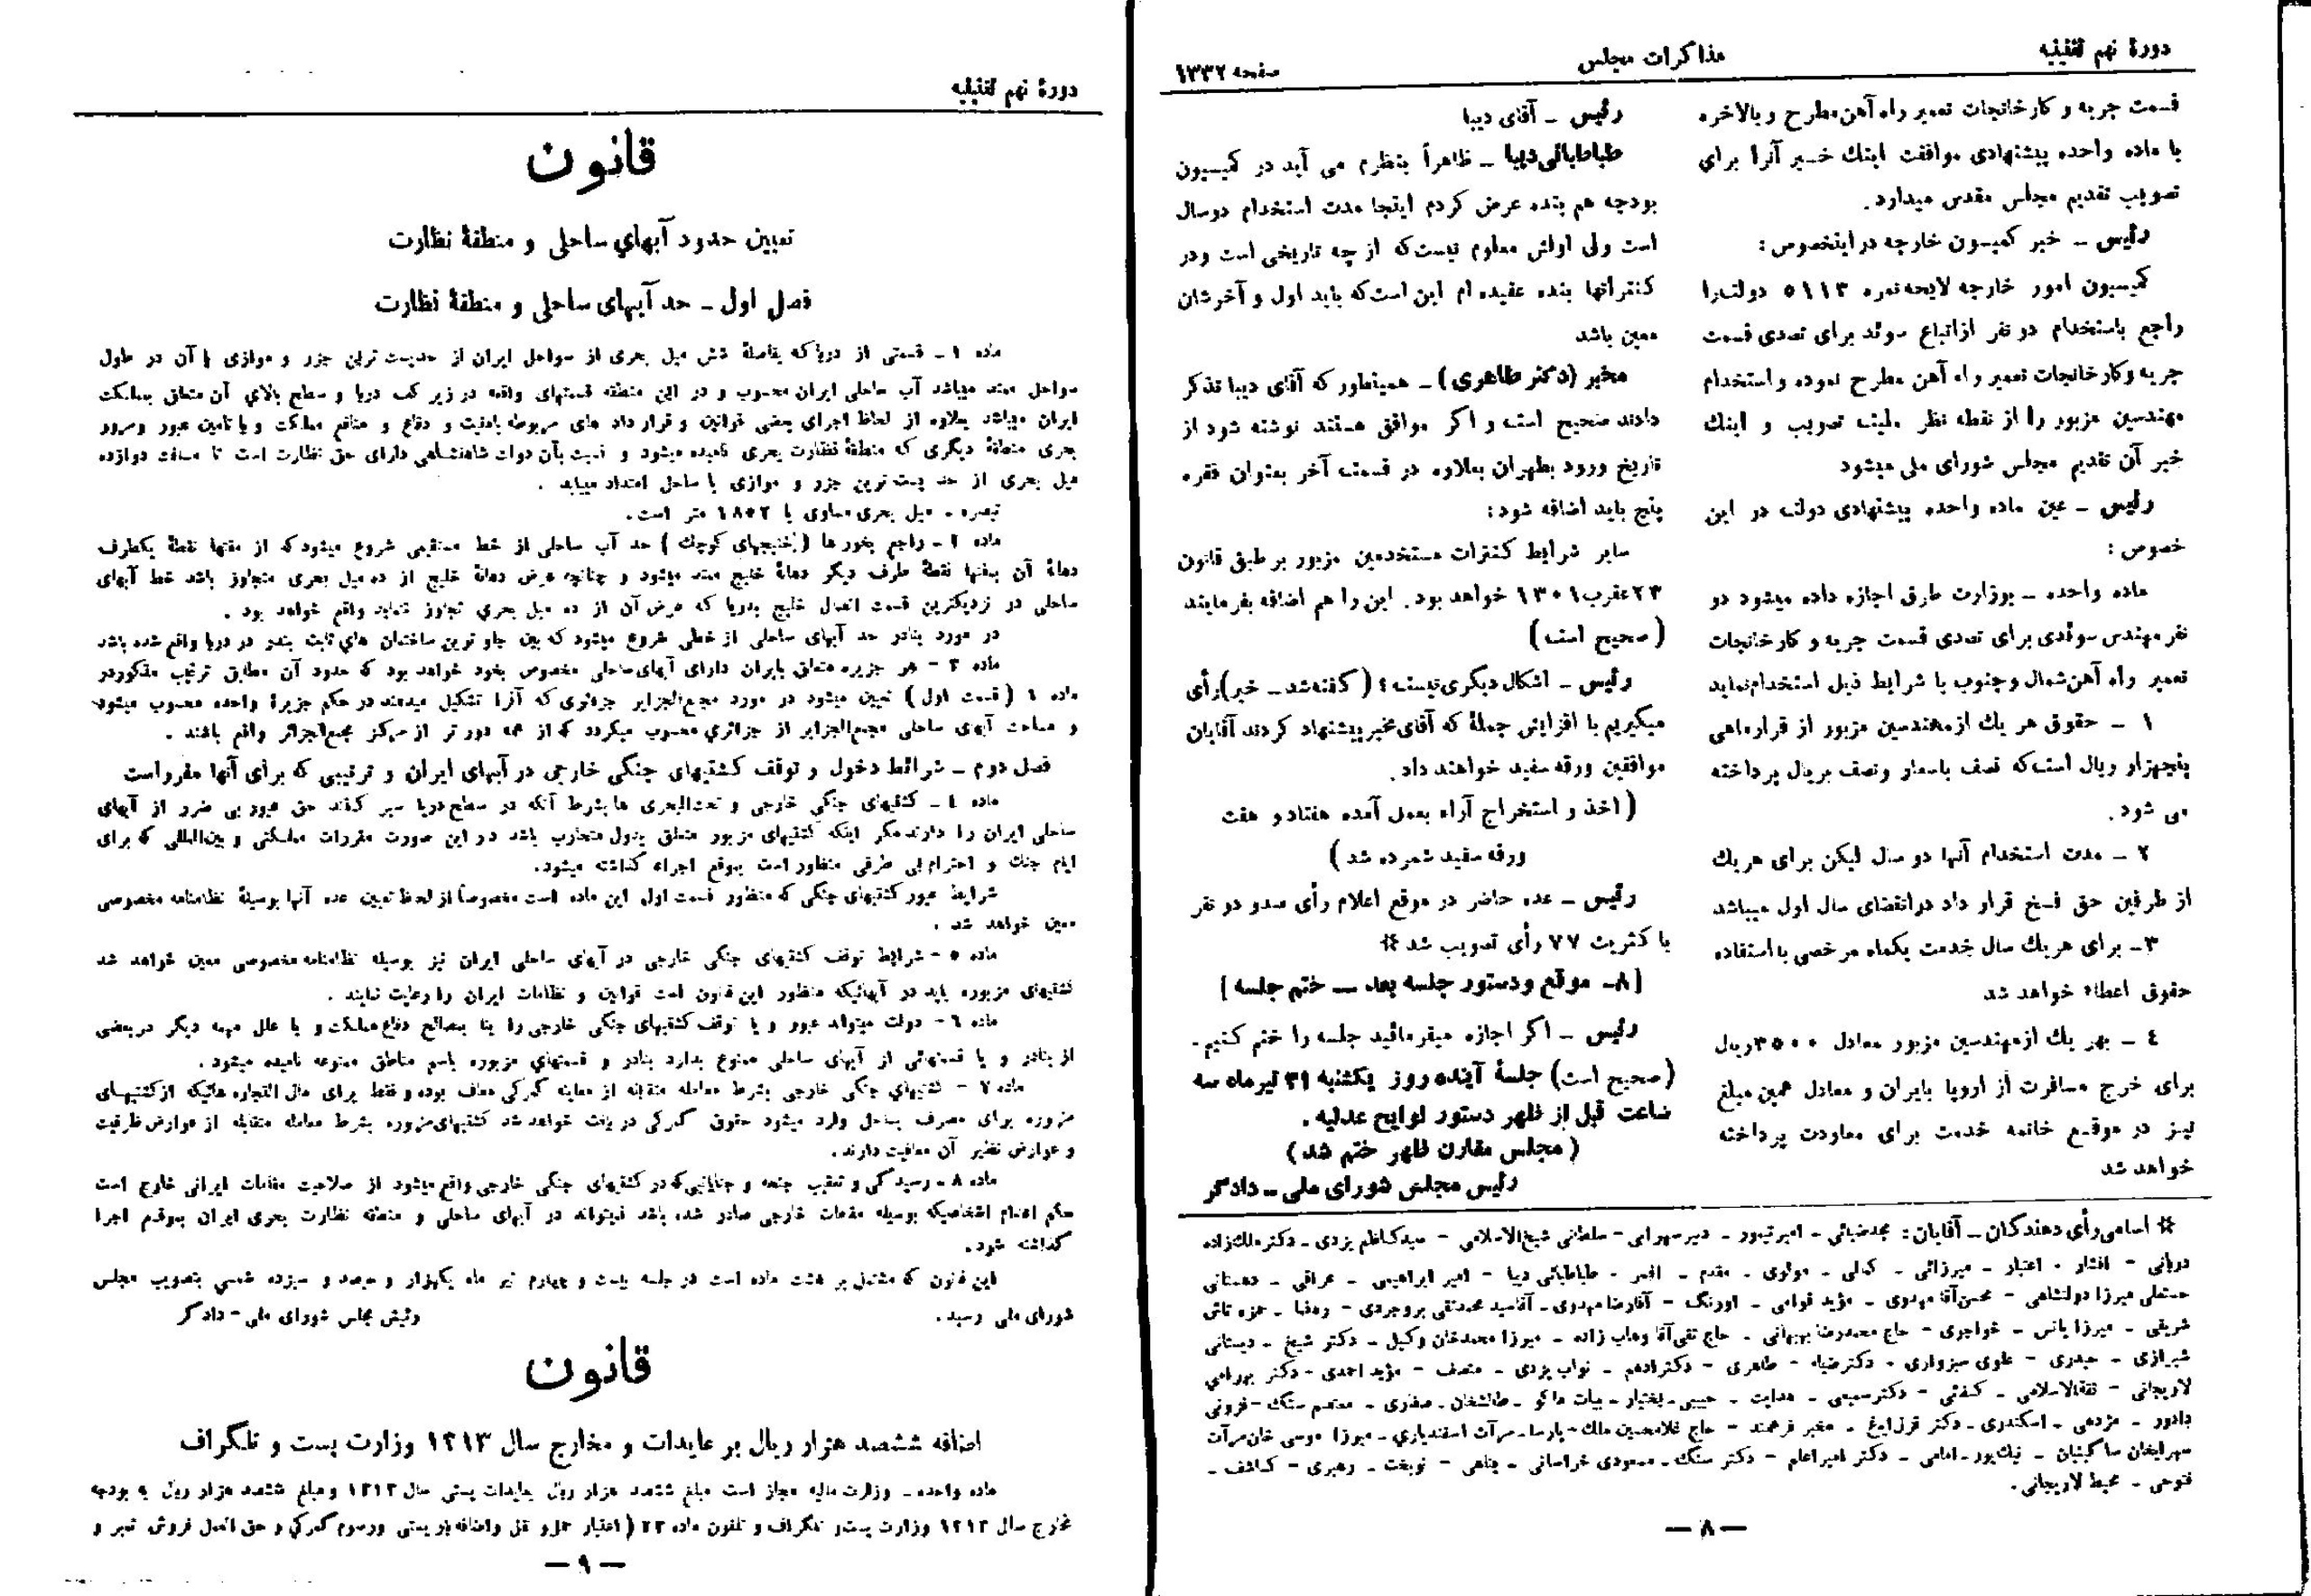 دورهٔ نهم تقنینیه
مذاکرات مجلس
صفحه ۱۳۳۲
قسمت جربه و کارخانجات تعمیر راه آهن مطرح و بالاخره
با ماده واحده پیشنهادی موافقت اینك خبر آنرا برای
تصویب تقدیم مجلس مقدس میدارد.
رئیس ـ خبر کمیسون خارجه در اینخصوص :
کمیسیون امور خارجه لایحه نمره ۵۱۱۳ دولت را
راجع باستخدام دو نفر از اتباع سوئد برای تصدی قسمت
جربه و کارخانجات تعمیر راه آهن مطرح نموده و استخدام
مهندسین مزبور را از نقطه نظر ملیت تصویب و اینك
خبر آن تقدیم مجلس شورای ملی میشود
رئیس ـ عین ماده واحده پیشنهادی دولت در این
خصوص :
ماده واحده ـ بوزارت طرق اجازه داده میشود دو
نفر مهندس سوئدی برای تصدی قسمت جربه و کارخانجات
تعمیر راه آهن شمال و جنوب با شرایط ذیل استخدام نماید
۱ ـ حقوق هر یك از مهندسین مزبور از قرار ماهی
پنجهزار ریال است که نصف باسعار و نصف بریال پرداخته
می شود.
۲ ـ مدت استخدام آنها دو سال لیکن برای هر یك
از طرفین حق فسخ قرار داد در انقضای سال اول میباشد
۳ـ برای هر یك سال خدمت یکماه مرخصی با استفاده
حقوق اعطاء خواهد شد
٤ ـ بهر یك از مهندسین مزبور معادل ۳۵۰۰ ریال
برای خرج مسافرت از اروپا بایران و معادل همین مبلغ
نیز در موقع خاتمه خدمت برای معاودت پرداخته
خواهد شد
رئیس ـ آقای دیبا
طباطبائی دیبا ـ ظاهراً بنظرم می آید در کمیسیون
بودجه هم بنده عرض کردم اینجا مدت استخدام دوسال
است ولی اولش معلوم نیست که از چه تاریخی است و در
کنتراتها بنده عقیده ام این است که باید اول و آخرشان
معین باشد
مخبر (دکتر طاهری) ـ همینطور که آقای دیبا تذکر
دادند صحیح است و اگر موافق هستند نوشته شود از
تاریخ ورود بطهران بعلاوه در قسمت آخر بعنوان فقره
پنج باید اضافه شود :
سایر شرایط کنترات مستخدمین مزبور بر طبق قانون
۲۳ عقرب ۱۳۰۱ خواهد بود. این را هم اضافه بفرمایند
(صحیح است)
رئیس ـ اشکال دیگری نیست؟ (گفته شد ـ خیر) رأی
میگیریم با افزایش جملهٔ که آقای مخبر پیشنهاد کردند آقایان
موافقین ورقه سفید خواهند داد.
(اخذ و استخراج آراء بعمل آمده هفتاد و هفت
ورقه سفید شمرده شد)
رئیس ـ عده حاضر در موقع اعلام رأی صد و دو نفر
با کثریت ۷۷ رأی تصویب شد *
[۸ـ موقع و دستور جلسه بعد ـ ختم جلسه]
رئیس ـ اگر اجازه میفرمائید جلسه را ختم کنیم ـ
(صحیح است) جلسهٔ آینده روز یکشنبه ۳۱ تیر ماه سه
ساعت قبل از ظهر دستور لوایح عدلیه.
(مجلس مقارن ظهر ختم شد)
رئیس مجلس شورای ملی ـ دادگر
* اسامی رأی دهندگان ـ آقایان : محمد ضیائی ـ امیر تیمور ـ دبیر سهرابی ـ سلطانی شیخ الاسلامی ـ سید کاظم یزدی ـ دکتر ملك زاده
افشار ـ اعتبار ـ میرزائی ـ کمالی ـ مولوی ـ مقدم ـ افسر ـ طباطبائی دیبا ـ امیر ابراهیمی ـ عراقی ـ دهستانی
حسنعلی میرزا دولتشاهی ـ محسن آقا مهدوی ـ مؤید قوامی ـ اورنگ ـ آقا رضا مهدوی ـ آقا سید محمد تقی بروجردی ـ رهنما ـ حمزه تاش
شریفی ـ میرزا یانس ـ خواجوی ـ حاج محمد رضا بهبهانی ـ حاج تقی آقا وهاب زاده ـ میرزا محمد خان وکیل ـ دکتر شیخ ـ دبستانی
شیرازی ـ حیدری ـ علوی سبزواری ـ دکتر ضیاء ـ طاهری ـ دکتر ادهم ـ نواب یزدی ـ منصف ـ مؤید احمدی ـ دکتر بهرامی
لاریجانی ـ ثقة الاسلامی ـ کفائی ـ دکتر سمیعی ـ هدایت ـ حبیبی ـ بختیار ـ بیات ماکو ـ طالشخان ـ صفاری ـ معتصم سنگ ـ قزونی
دادور ـ مژدهی ـ اسکندری ـ دکتر قزل ایاغ ـ مخبر فرهمند ـ حاج غلامحسین ملك ـ پارسا ـ مرآت اسفندیاری ـ میرزا موسی خان مرآت
سهرابخان ساگینیان ـ نیك پور ـ امامی ـ دکتر امیر اعلم ـ دکتر سنگ ـ مسعودی خراسانی ـ پناهی ـ نوبخت ـ رهبری ـ کاشف ـ
فتوحی ـ محیط لاریجانی.
ـ ۸ ـ
دورهٔ نهم تقنینیه
قانون
تعیین حدود آبهای ساحلی و منطقهٔ نظارت
فصل اول ـ حد آبهای ساحلی و منطقهٔ نظارت
ماده ۱ ـ قسمتی از دریا که بفاصلهٔ شش میل بحری از سواحل ایران از حد پست ترین جزر و موازی با آن در طول
سواحل ممتد میباشد آب ساحلی ایران محسوب و در این منطقه قسمتهای واقعه در زیر کف دریا و سطح بالای آن متعلق بمملکت
ایران میباشد بعلاوه از لحاظ اجرای بعضی قوانین و قرار داد های مربوطه بامنیت و دفاع و منافع مملکت و یا تامین عبور و مرور
بحری منطقهٔ دیگری که منطقهٔ نظارت بحری نامیده میشود و نسبت بآن دولت شاهنشاهی دارای حق نظارت است تا مسافت دوازده
میل بحری از حد پست ترین جزر و موازی با ساحل امتداد مییابد .
تبصره ـ میل بحری مساوی با ۱۸۵۲ متر است.
ماده ۲ ـ راجع بخور ها (خلیجهای کوچك) حد آب ساحلی از خط مستقیمی شروع میشود که از منتها نقطهٔ یکطرف
دهانهٔ آن بمنتها نقطهٔ طرف دیگر دهانهٔ خلیج ممتد میشود و چنانچه عرض دهانهٔ خلیج از ده میل بحری متجاوز باشد خط آبهای
ساحلی در نزدیکترین قسمت اتصال خلیج بدریا که عرض آن از ده میل بحری تجاوز ننماید واقع خواهد بود .
در مورد بنادر حد آبهای ساحلی از خطی شروع میشود که بین جلو ترین ساختمان های ثابت بندر در دریا واقع شده باشد
ماده ۳ ـ هر جزیره متعلق بایران دارای آبهای ساحلی مخصوص بخود خواهد بود که حدود آن مطابق ترتیب مذکور در
ماده ۱ (قسمت اول) تعیین میشود در مورد مجمع الجزایر جزائری که آنرا تشکیل میدهند در حکم جزیرهٔ واحده محسوب میشود
و مساحت آبهای ساحلی مجمع الجزایر از جزائری محسوب میگردد که از همه دور تر از مرکز مجمع الجزائر واقع باشند .
فصل دوم ـ شرائط دخول و توقف کشتیهای جنگی خارجی در آبهای ایران و ترتیبی که برای آنها مقرر است
ماده ٤ ـ کشتیهای جنگی خارجی و تحت البحری ها بشرط آنکه در سطح دریا سیر کنند حق عبور بی ضرر از آبهای
ساحلی ایران را دارند مگر اینکه کشتیهای مزبور متعلق بدول متحارب باشد در این صورت مقررات مملکتی و بین المللی که برای
ایام جنك و احترام بی طرفی منظور است بموقع اجراء گذاشته میشود.
شرایط عبور کشتیهای جنگی که منظور قسمت اول این ماده است مخصوصاً از لحاظ تعیین عده آنها بوسیلهٔ نظامنامه مخصوصی
معین خواهد شد .
ماده ۵ ـ شرایط توقف کشتیهای جنگی خارجی در آبهای ساحلی ایران نیز بوسیله نظامنامه مخصوصی معین خواهد شد
کشتیهای مزبوره باید در آبهائیکه منظور این قانون است قوانین و نظامات ایران را رعایت نمایند .
ماده ٦ ـ دولت میتواند عبور و یا توقف کشتیهای جنگی خارجی را بنا بمصالح دفاع مملکت و یا علل مهمه دیگر در بعضی
از بنادر و یا قسمتهائی از آبهای ساحلی ممنوع بدارد بنادر و قسمتهای مزبوره باسم مناطق ممنوعه نامیده میشود.
ماده ۷ ـ کشتیهای جنگی خارجی بشرط معامله متقابله از معاینه گمرکی معاف بوده و فقط برای مال التجاره هائیکه از کشتیهای
مزبوره برای مصرف بساحل وارد میشود حقوق گمرکی دریافت خواهد شد کشتیهای مزبوره بشرط معامله متقابله از عوارض ظرفیت
و عوارض نظیر آن معافیت دارند.
ماده ۸ ـ رسیدگی و تعقیب جنحه و جنایاتی که در کشتیهای جنگی خارجی واقع میشود از صلاحیت مقامات ایرانی خارج است
حکم اعدام اشخاصیکه بوسیله مقامات خارجی صادر شده باشد نمیتواند در آبهای ساحلی و منطقه نظارت بحری ایران بموقع اجرا
گذاشته شود.
این قانون که مشتمل بر هشت ماده است در جلسه بیست و چهارم تیر ماه یکهزار و سیصد و سیزده شمسی بتصویب مجلس
شورای ملی رسید.
رئیس مجلس شورای ملی ـ دادگر
قانون
اضافه ششصد هزار ریال بر عایدات و مخارج سال ۱۳۱۳ وزارت پست و تلگراف
ماده واحده ـ وزارت مالیه مجاز است مبلغ ششصد هزار ریال بعایدات پستی سال ۱۳۱۳ و مبلغ ششصد هزار ریال به بودجه
مخارج سال ۱۳۱۳ وزارت پست و تلگراف و تلفون ماده ۲۳ (اعتبار حمل و نقل و اضافه بار پستی و رسوم گمرکی و حق العمل فروش تمبر و
ـ ۹ ـ